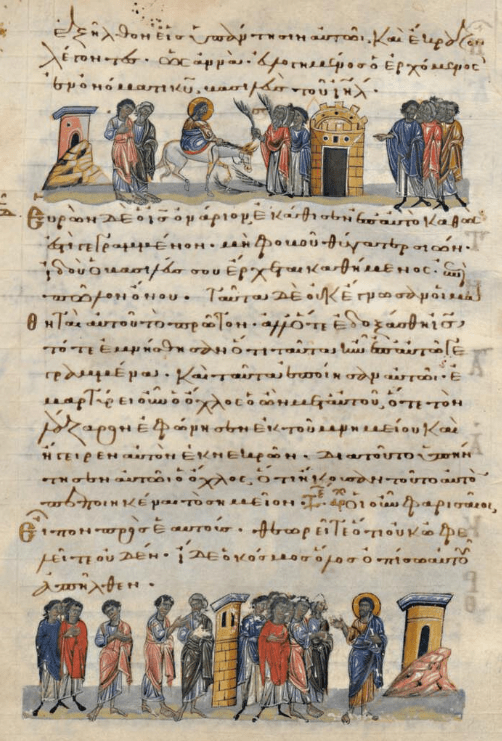 ἐξῆλθον εἰς ὑπάντησιν αὐτῶι. Καὶ ἔκραζον
λέγοντες. ὡσαννὰ. εὐλογημένος ὁ ἐρχόμενος
ἐν ὀνόματι κ̅υ̅, βασιλεὺς τοῦ ι̅η̅λ̅.
Εὑρὼν δὲ ὁ ι̅ς̅ ὀνάριον, ἐκάθισεν ἐπ' αὐτὸ καθώς
ἐστι γεγραμμένον. μὴ φοβοῦ θύγατερ σιών.
ἰδοὺ ὁ βασιλεύς σου ἔρχεται καθήμενος. ἐπὶ
πῶλον ὄνου. Ταῦτα δὲ οὐκ ἔγνωσαν οἱ μα
θηταὶ αὐτοῦ τὸ πρῶτον. ἀλλ' ὅτε ἐδοξάσθη ι̅ς̅
τότε ἐμνήσθησαν ὅτι ταῦτα ἦν ἐπ' αὐτῶ γε
γραμμένα. Καὶ ταῦτα ἐποίησαν αὐτῶι. ἐ
μαρτύρει οὖν ὁ ὄχλος ὁ ὢν μετ' αὐτοῦ, ὅτε τὸν
λάζαρον ἐφώνησεν ἐκ τοῦ μνημείου καὶ
ἤγειρεν αὐτὸν ἐκ νεκρῶν. Διατοῦτο ὑπήν
τησεν αὐτῶι ὁ ὄχλος, ὅτι ἤκουσαν τοῦτο αὐτὸν
πεποιηκέναι τὸ σημεῖον. Οἱ οὖν φαρισαῖοι,
Εἶπον πρὸς ἑαυτούς. θεωρεῖτε ὅτι οὐκ ὠφε
λεῖτε οὐδέν. ἴδε ὁ κόσμος ὅλος ὀπίσω αὐτοῦ
ἀπῆλθεν.